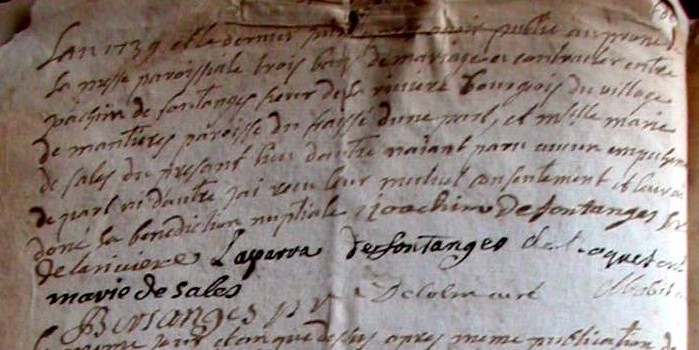 L'an 1739 et le dernier publié au prone de
la messe paroissiale trois bans de mariage a contracter entre
joachim de fontanges sieur de la riviere bourgois du village
de mantieres paroisse du d'une part, et mselle marie
de sales du present lieu d'autre naiant paru aucun
de part ni d'autre jai recu leur mutuel consentement et leur ai
doné la benediction nuptiale joachim De fontanges
de lariviere Laparra defontanges
marie de sales Delolm curé
Bersanges
jour et an que dessus apres meme publication de